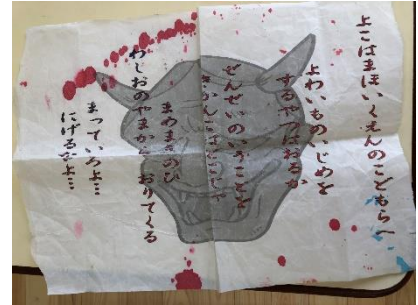 よこはまほいくえんのこどもらへ
よわいものいじめを
するやつはおるか
せんせいのいうことを
まめまきのひ
わしおのやまからおりてくる
まっていろよ…
にげるなよ…